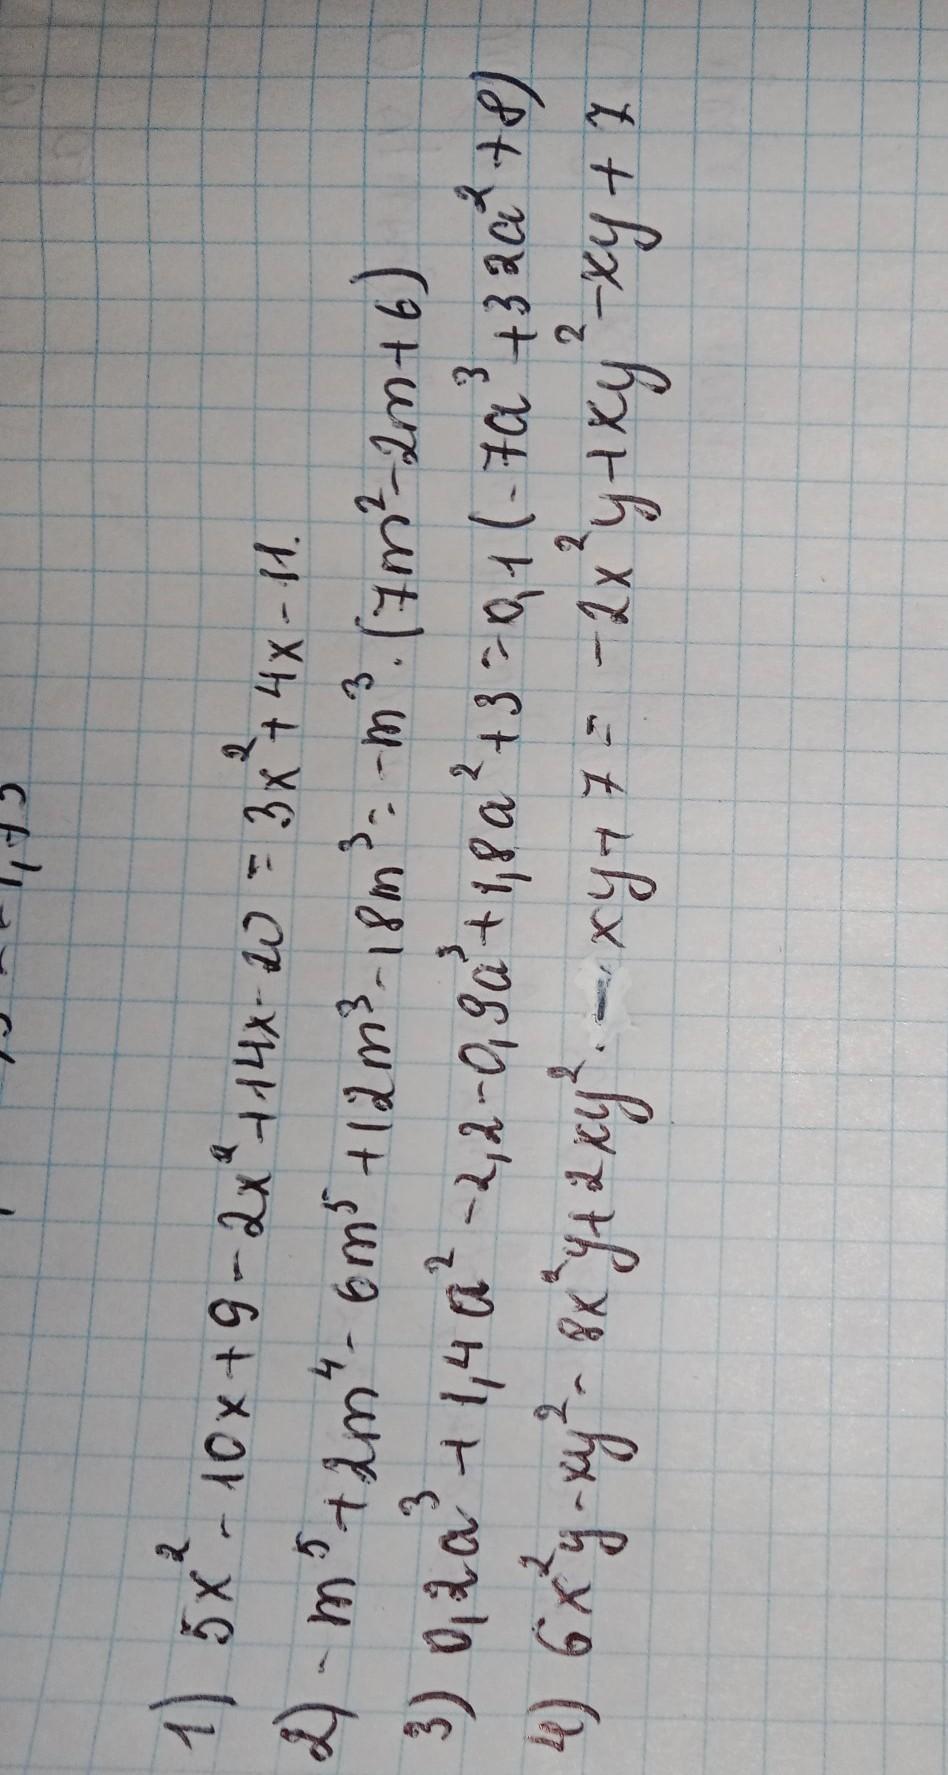 1) 5x² - 10x + 9 - 2x² + 14x - 20 = 3x² + 4x - 11.
2) - m⁵ + 2m⁴ - 6m⁵ + 12m³ - 18m³ = - m³ · (7m² - 2m + 6)
3) 0,2a³ + 1,4a² - 2,2 - 0,9a³ + 1,8a² + 3 = 0,1 (- 7a³ + 32a² + 8)
4) 6x²y - xy² - 8x²y + 2xy² · - xy + 7 = - 2x²y + xy² - xy + 7